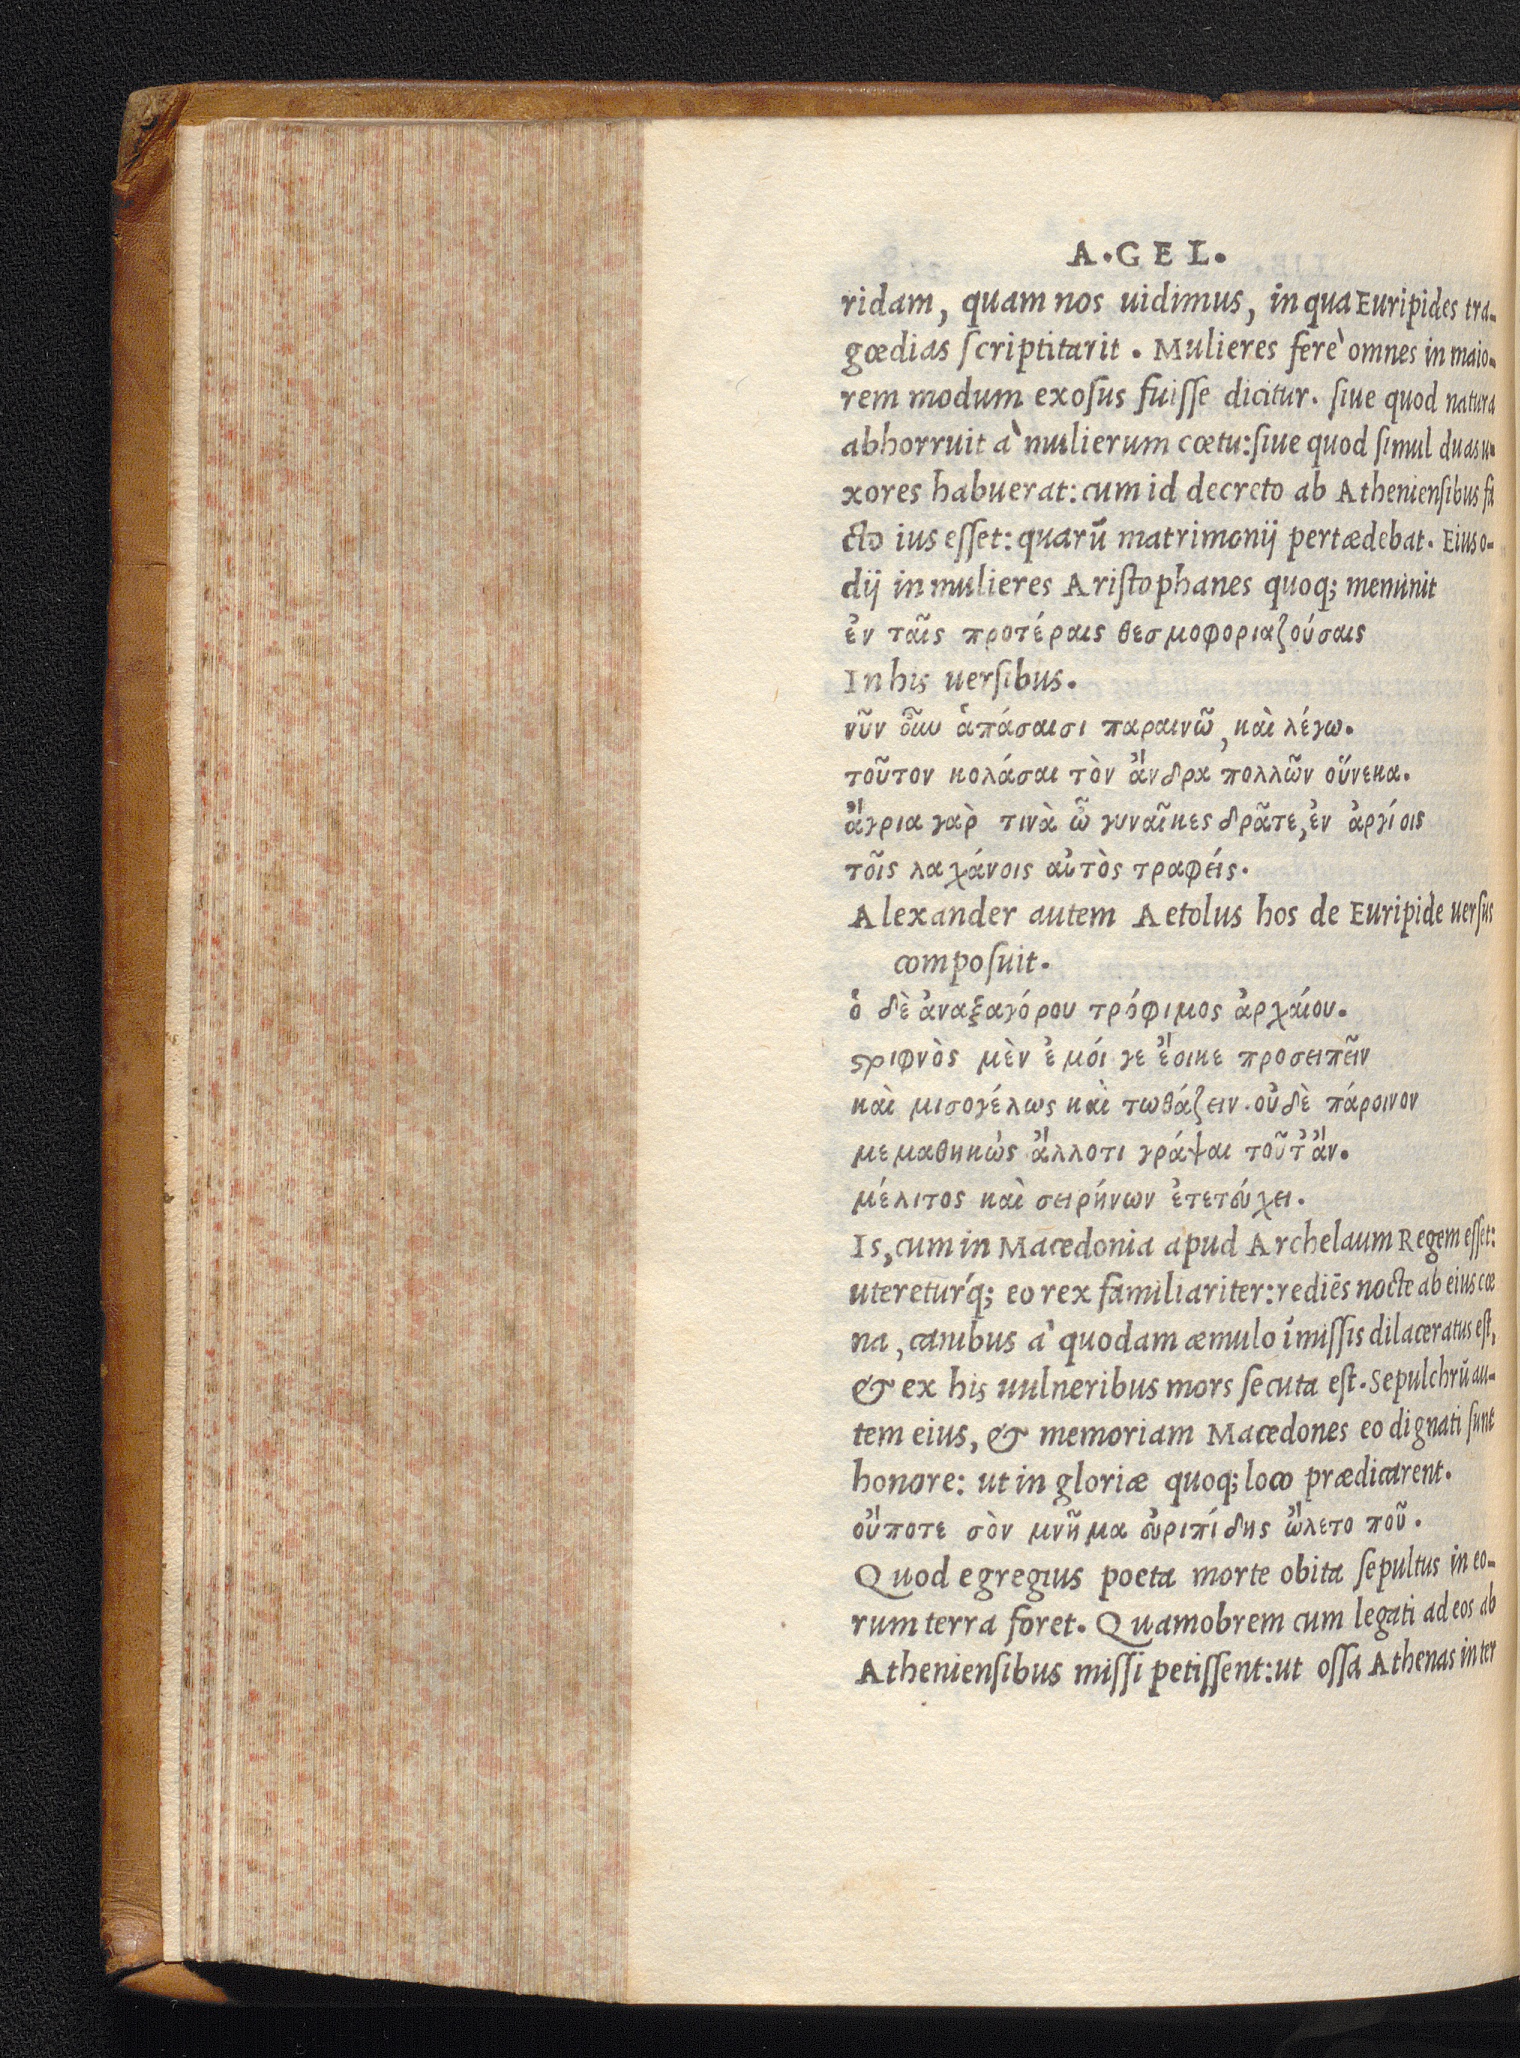 A.GEL.
ridam, quam nos uidimus, in qua Euripides tra-
gœdias ſcriptitarit. Mulieres ferè omnes in maio-
rem modum exoſus fuiſſe dicitur. ſiue quod natura
abhorruit à mulierum cœtu: ſiue quod ſimul duas u-
xores habuerat: cum id decreto ab Athenienſibus fa
cto ius eſſet: quarū matrimonij pertædebat. Eius o-
dij in mulieres Ariſtophanes quoq; meminit
ἐν ταῖς προτέραις θεσμοφοριαζούσαις
In his uerſibus.
νῦν οὖν ἁπάσαισι παραινῶ, καὶ λέγω.
τοῦτον κολάσαι τὸν ἄνδρα πολλῶν οὕνεκα.
ἄγρια γαρ̀ τινὰ ὦ γυναῖκες δρᾶτε, ἐν ἀργίοις
τοῖς λαχάνοις αὐτὸς τραφείς.
Alexander autem Aetolus hos de Euripide uerſus
compoſuit.
ὁ δὲ ἀναξαγόρου τρόφιμος ἀρχαίου.
στριφνὸς μὲν ἐμόι γε ἔοικε προσειπεῖν
καὶ μισογέλως καὶ τωθάζειν. οὐδὲ πάροινον
μεμαθηκὼς ἄλλοτι γράψαι τοῦτ' ἀν.
μέλιτος καὶ σειρήνων ἐτετεύχει.
Is, cum in Macedonia apud Archelaum Regem eſſet:
utereturq́; eo rex familiariter: rediēs nocte ab eius cœ
na, canibus à quodam æmulo īmiſſis dilaceratus eſt,
& ex his uulneribus mors ſecuta eſt. Sepulchrū au-
tem eius, & memoriam Macedones eo dignati ſunt
honore: ut in gloriæ quoq; loco prædicarent.
οὔποτε σὸν μνῆμα εὐριπίδης ὤλετο ποῦ.
Quod egregius poeta morte obita ſepultus in eo-
rum terra foret. Quamobrem cum legati ad eos ab
Athenienſibus miſſi petiſſent: ut oſſa Athenas in ter